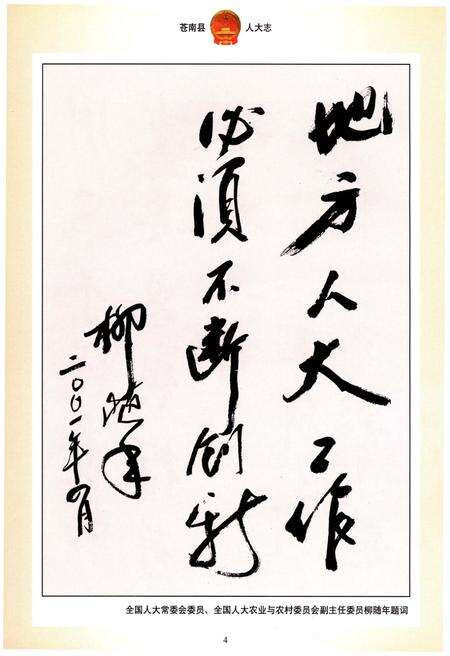 苍南县 人大志
地方人大工作
必须不断创新
柳随年
二〇〇一年四月
全国人大常委会委员、全国人大农业与农村委员会副主任委员柳随年题词
4